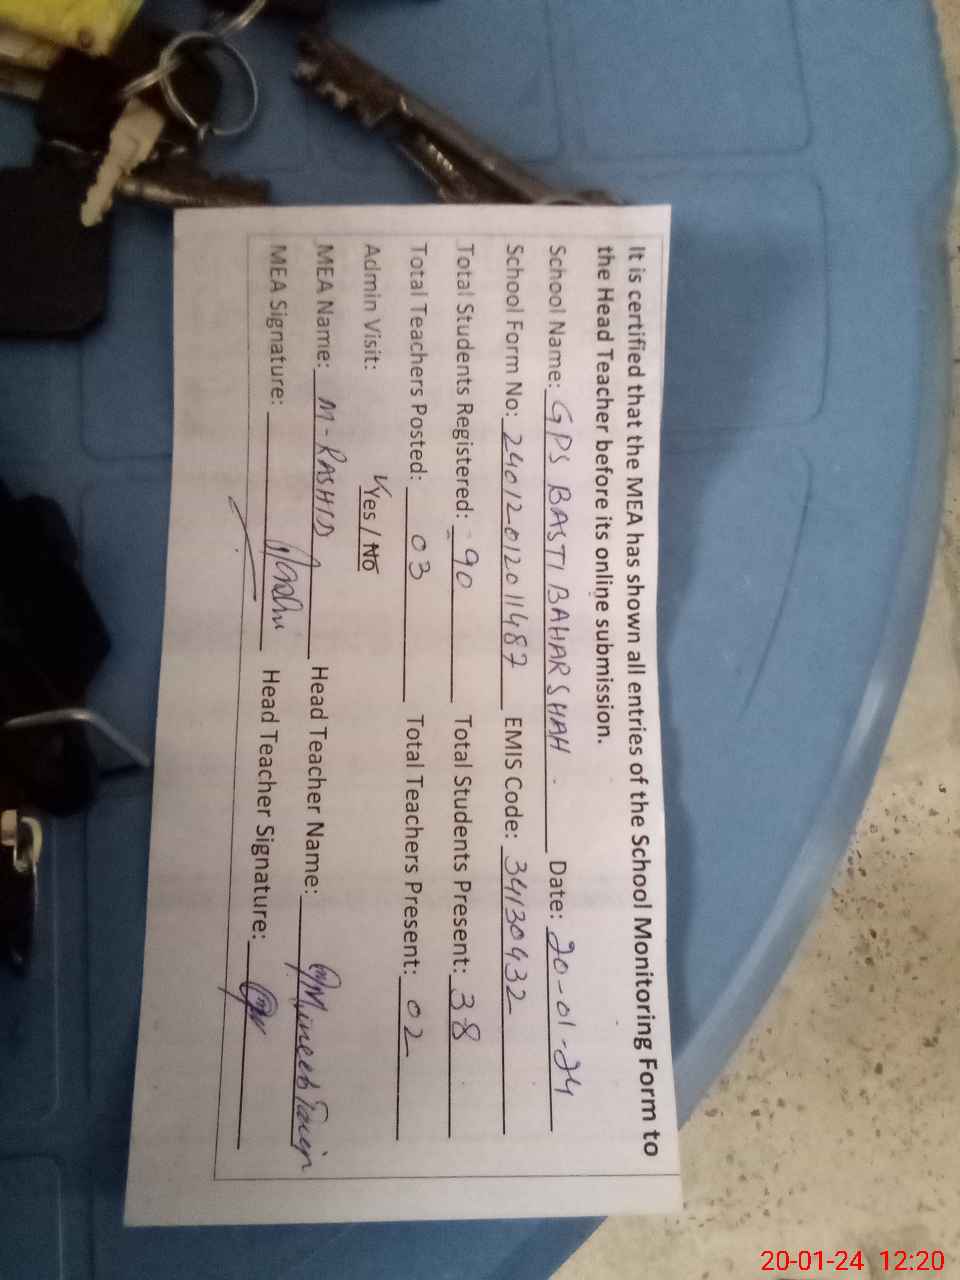 It is certified that the MEA has shown all entries of the School Monitoring Form to
the Head Teacher before its online submission.
School Name: GPS BASTI BAHAR SHAH . Date: 20-01-24
School Form No: 24012012011487 EMIS Code: 34130432
Total Students Registered: 90 Total Students Present: 38
Total Teachers Posted: 03 Total Teachers Present: 02
Admin Visit: Yes / No
MEA Name: M-RASHID Head Teacher Name: Muneeb
MEA Signature: Head Teacher Signature:
20-01-24 12:20